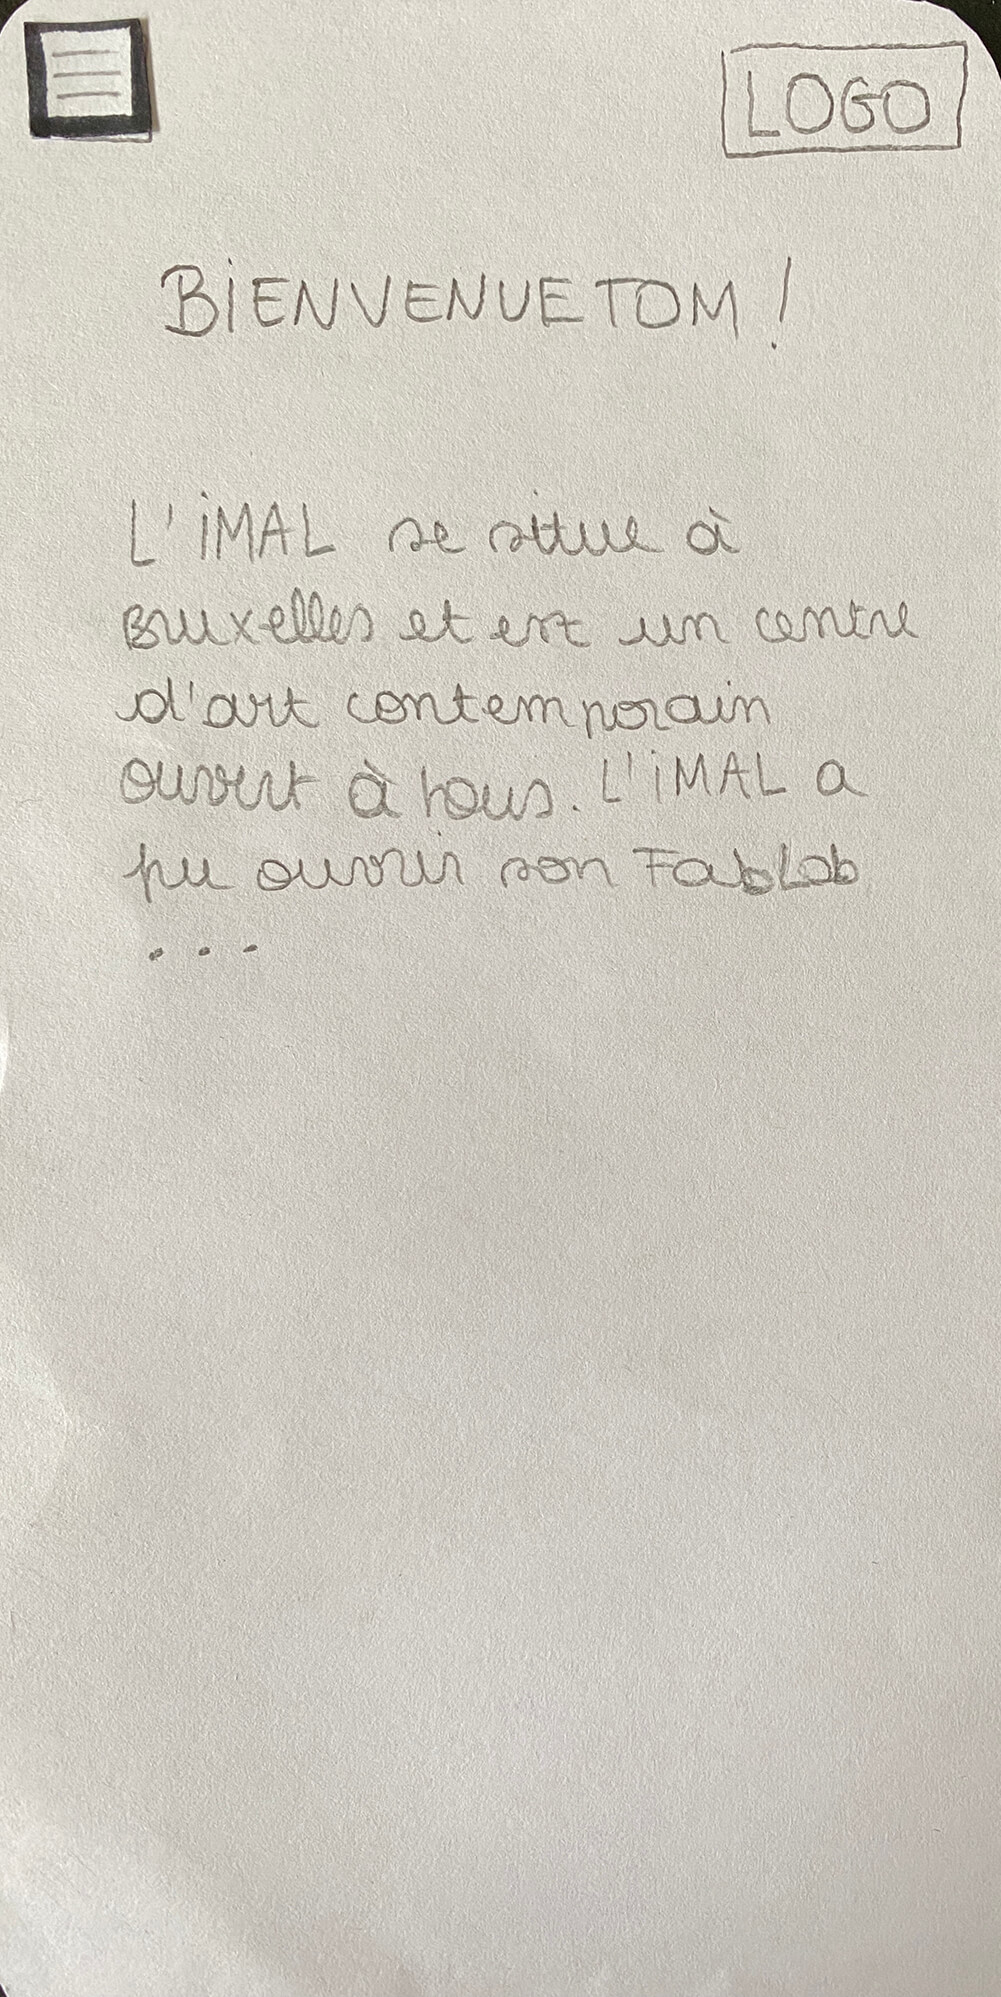 LOGO
BIENVENUE TOM !
L'iMAL se situe à
Bruxelles et est un centre
d'art contemporain
ouvert à tous. L'iMAL a
pu ouvrir son FabLab
...